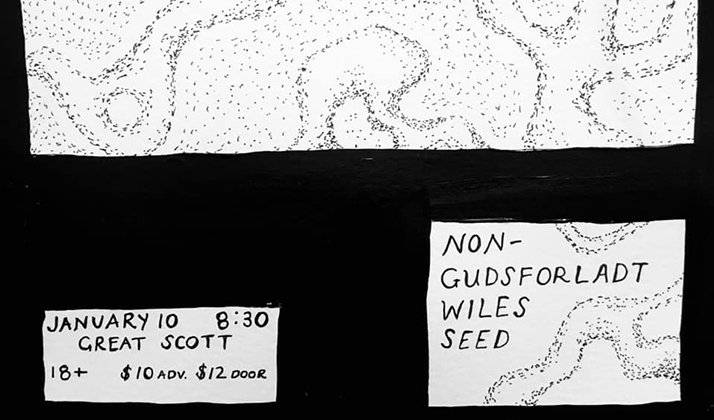 JANUARY 10 8:30
GREAT SCOTT
18+ $10 ADV. $12 DOOR
NON-
GUDSFORLADT
WILES
SEED